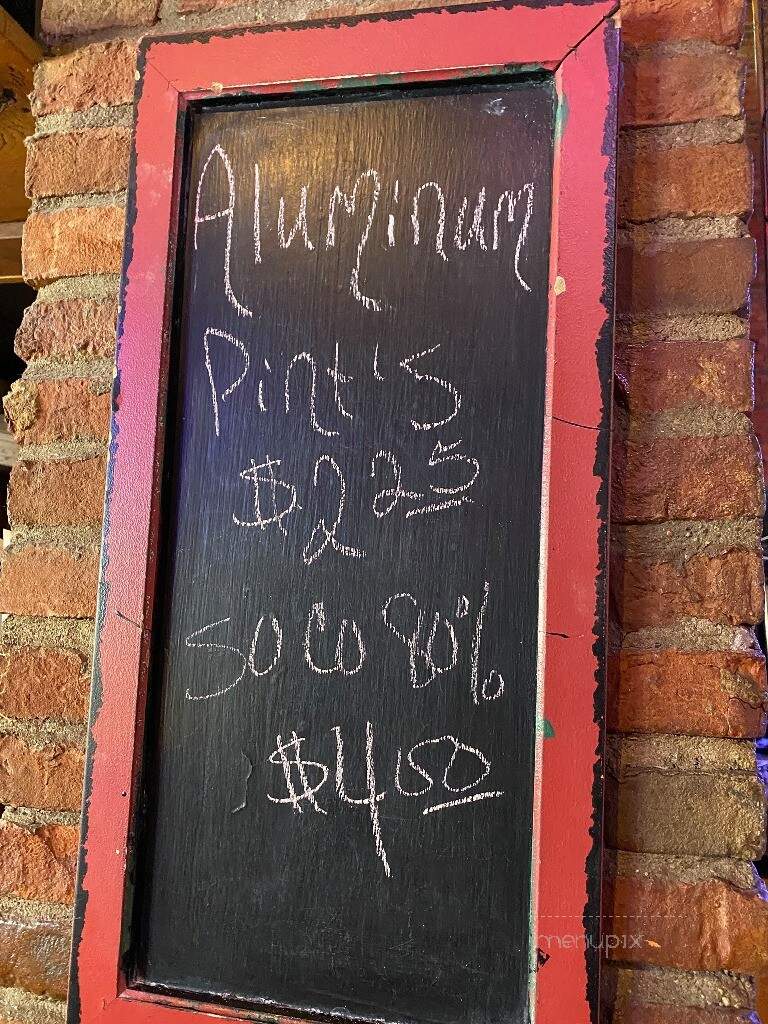 Aluminum
Pint's
$2 25
SO CO 80%
$4 00
menupix